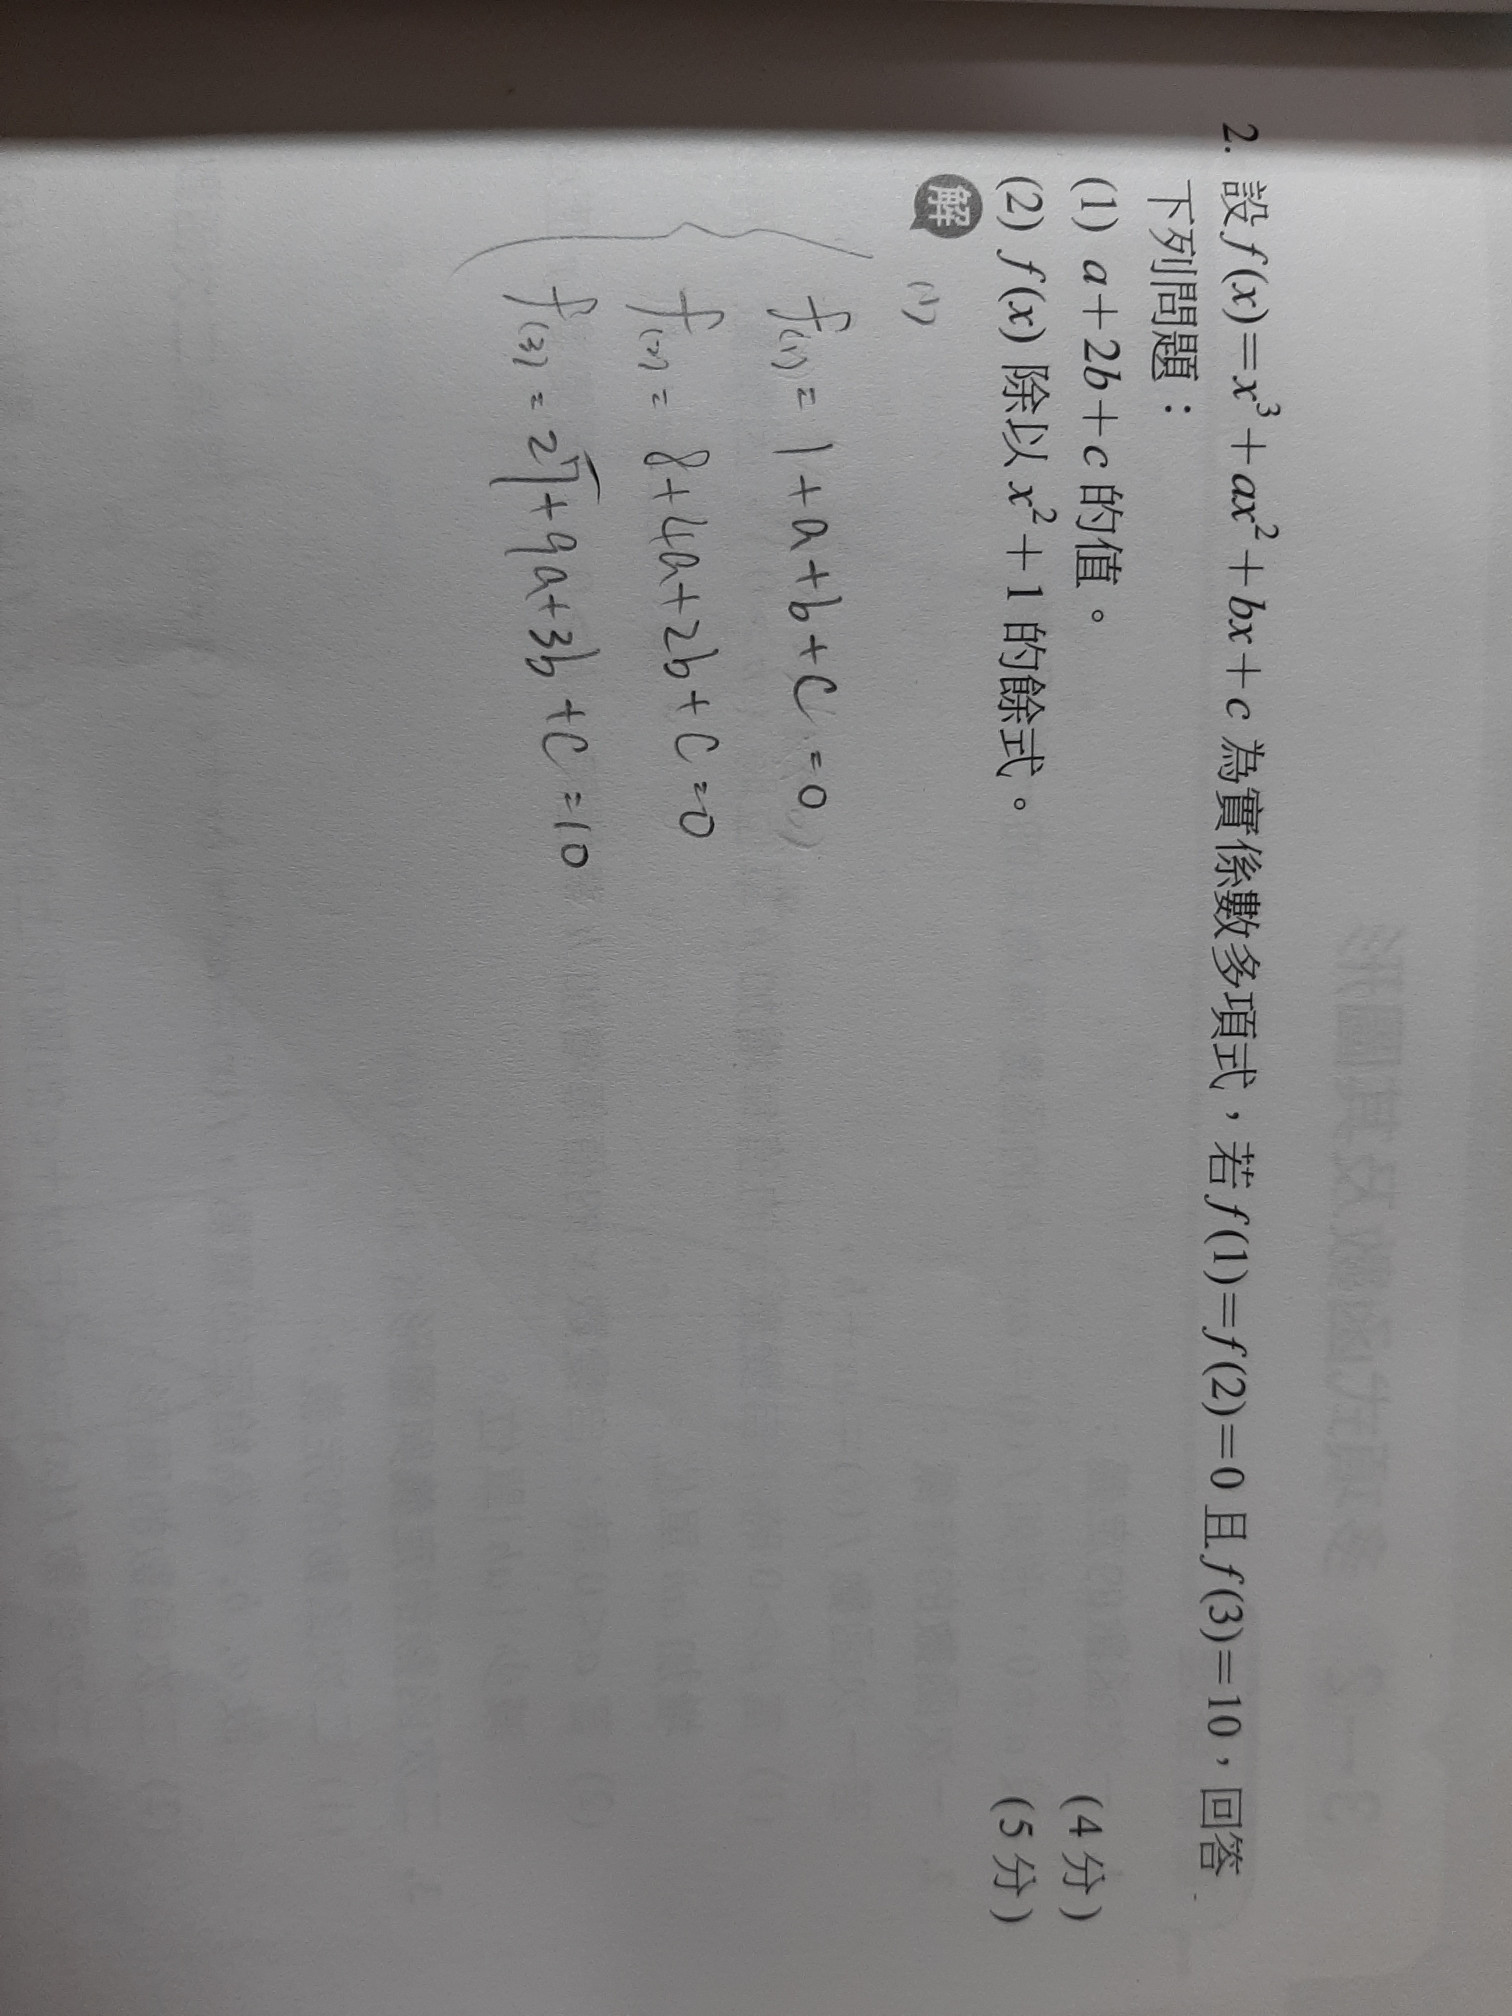 2. 設 f(x)=x³+ax²+bx+c 為實係數多項式，若 f(1)=f(2)=0 且 f(3)=10，回答
下列問題：
(1) a+2b+c 的值。 (4分)
(2) f(x) 除以 x²+1 的餘式。 (5分)
解 (1)
f(1) = 1+a+b+c=0
f(2) = 8+4a+2b+c=0
f(3) = 27+9a+3b+c=10